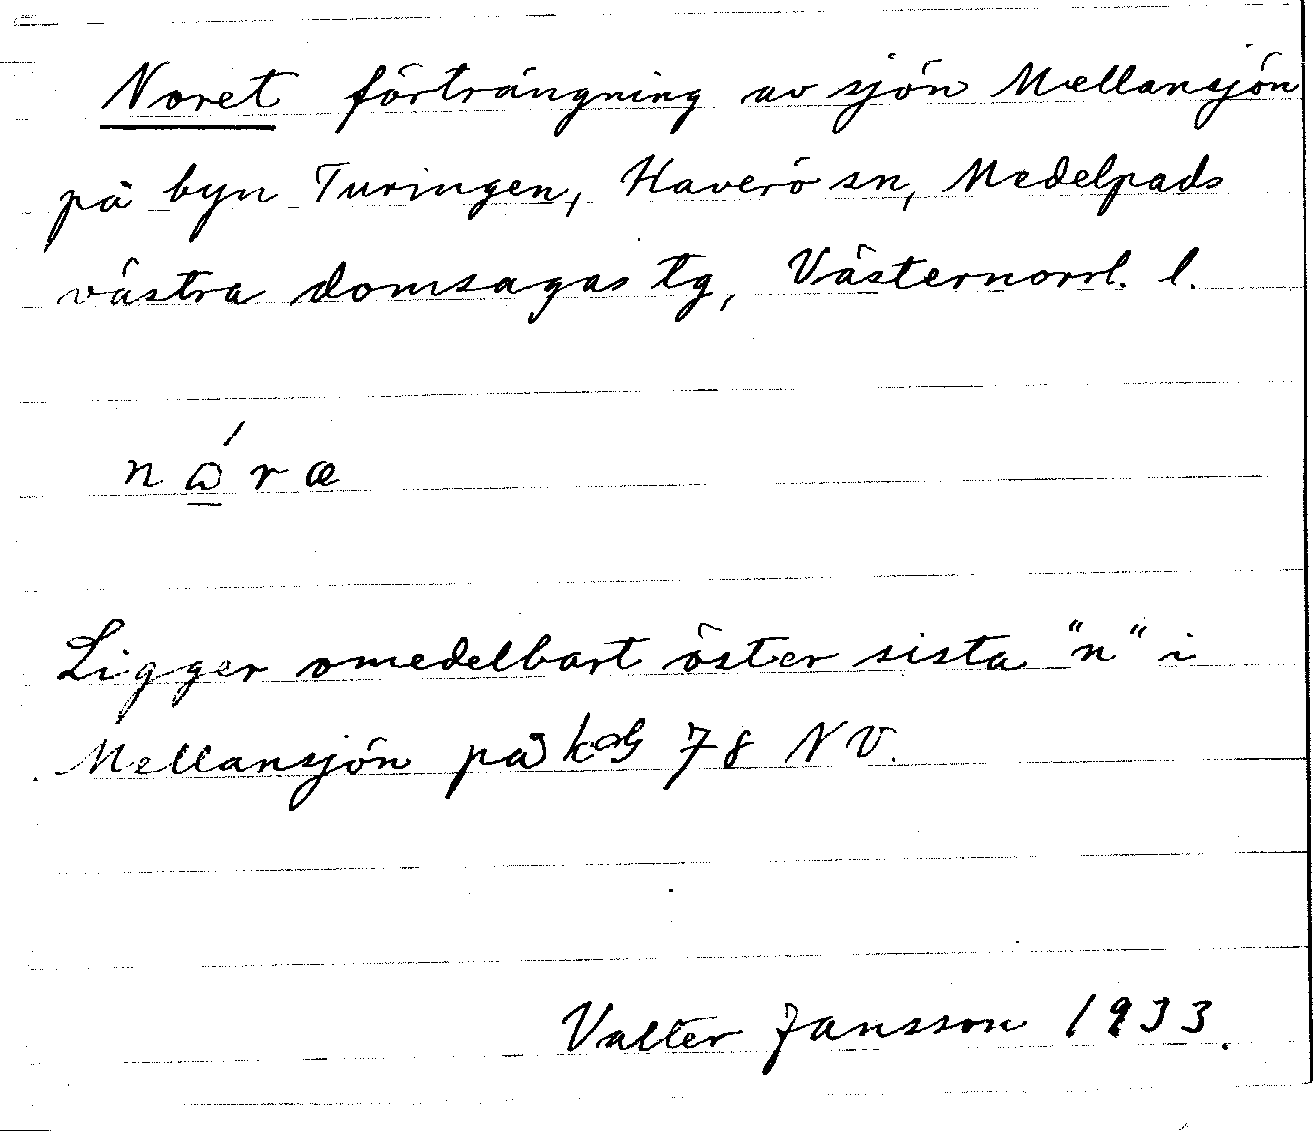 Noret förträngning av sjön Mellansjön
på byn Turingen, Haverö sn, Medelpads
västra domsagas tg, Västernorrl. l.
Ligger omedelbart öster sista "n" i
Mellansjön på kbl 78 NV.
Valter Jansson 1933.